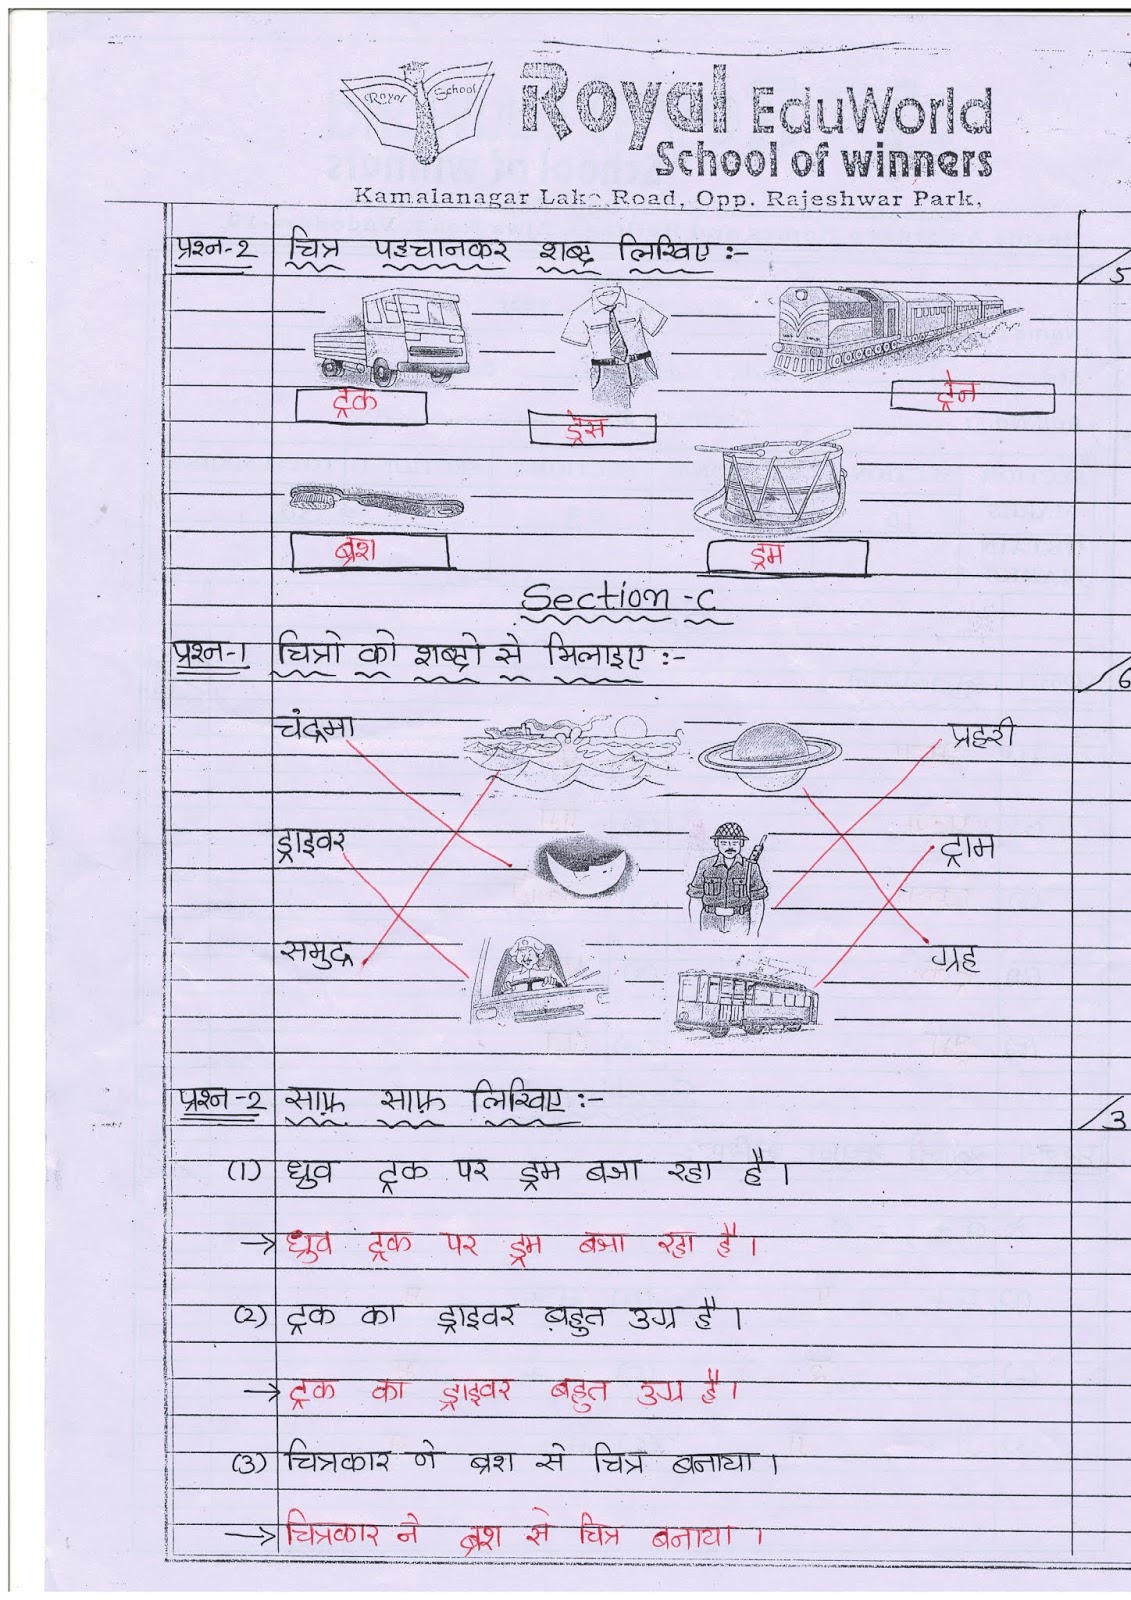 Royal School
Royal EduWorld
School of winners
Kamalanagar Lake Road, Opp. Rajeshwar Park,
प्रश्न-२ चित्र पहचानकर शब्द लिखिए :- 5
ट्रक
ड्रेस
ट्रेन
ब्रश
ड्रम
Section -C
प्रश्न-1 चित्रो को शब्दो से मिलाइए :- 6
चंद्रमा प्रहरी
ड्राइवर ट्राम
समुद्र ग्रह
प्रश्न-2 साफ़ साफ़ लिखिए :- 3
(1) ध्रुव ट्रक पर ड्रम बजा रहा है।
→ ध्रुव ट्रक पर ड्रम बजा रहा है।
(2) ट्रक का ड्राइवर बहुत उग्र है।
→ ट्रक का ड्राइवर बहुत उग्र है।
(3) चित्रकार ने ब्रश से चित्र बनाया।
→ चित्रकार ने ब्रश से चित्र बनाया।